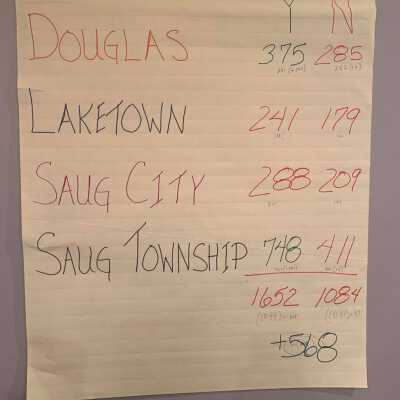 Y N
DOUGLAS 375 285
LAKETOWN 241 179
SAUG CITY 288 209
SAUG TOWNSHIP 748 411
1652 1084
+568